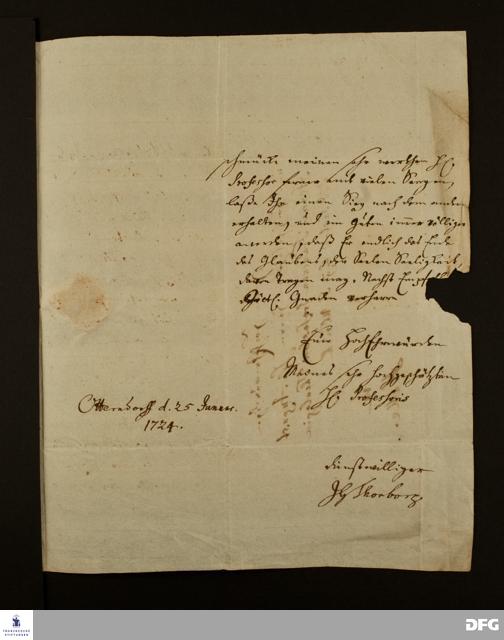 schmücke meinen sehr werthen H.
Professor ferner mit vielen Seegen,
laße Ihn einen Sieg nach dem andern
erhalten, und im Guten immer völliger
werden, daß Er endlich das Ende
des Glaubens, der Seelen Seeligkeit,
davon tragen mag. Nechst
Göttl. Gnaden verharre
Euer HochEhrwürden
Meines sehr hochgeschätzten
H. Professoris
Otterndorff d. 25 Januar.
1724.
dienstwilliger
FRANCKESCHE
STIFTUNGEN
DFG